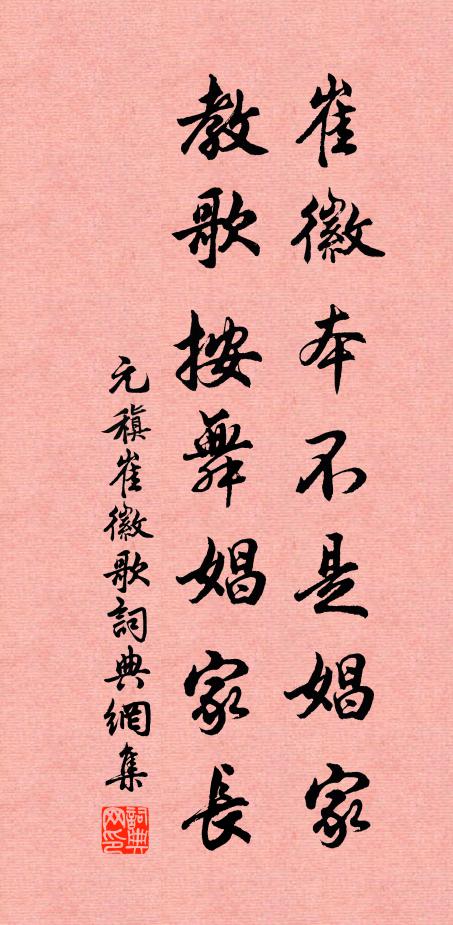 崔徽本不是娼家
教歌按舞娼家長
元稹崔徽歌詞典網集
詞典網印